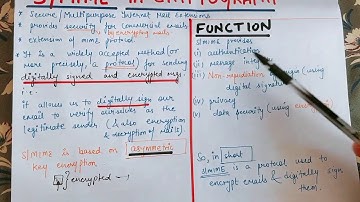 S/MIME IN CRYPTOGRAPHY
* Secure / Multipurpose Internet Mail Extensions
* provides security for commercial emails
by encrypting mails
* extension of MIME protocol
* It is a widely accepted method (or
more precisely, a protocol) for sending
digitally signed and encrypted msg.
i.e.
it allows us to digitally sign our
email to verify ourselves as the
legitimate sender (& also encryption
& decryption of mails)
S/MIME is based on asymmetric
key encryption
encrypted
FUNCTION
S/MIME provides
(i) authentication
(ii) message integrity
(iii) Non-repudiation of origin (using
digital signature)
(iv) privacy
(v) data security (using
So, in short
S/MIME is a protocol used to
encrypt emails & digitally sign
them.